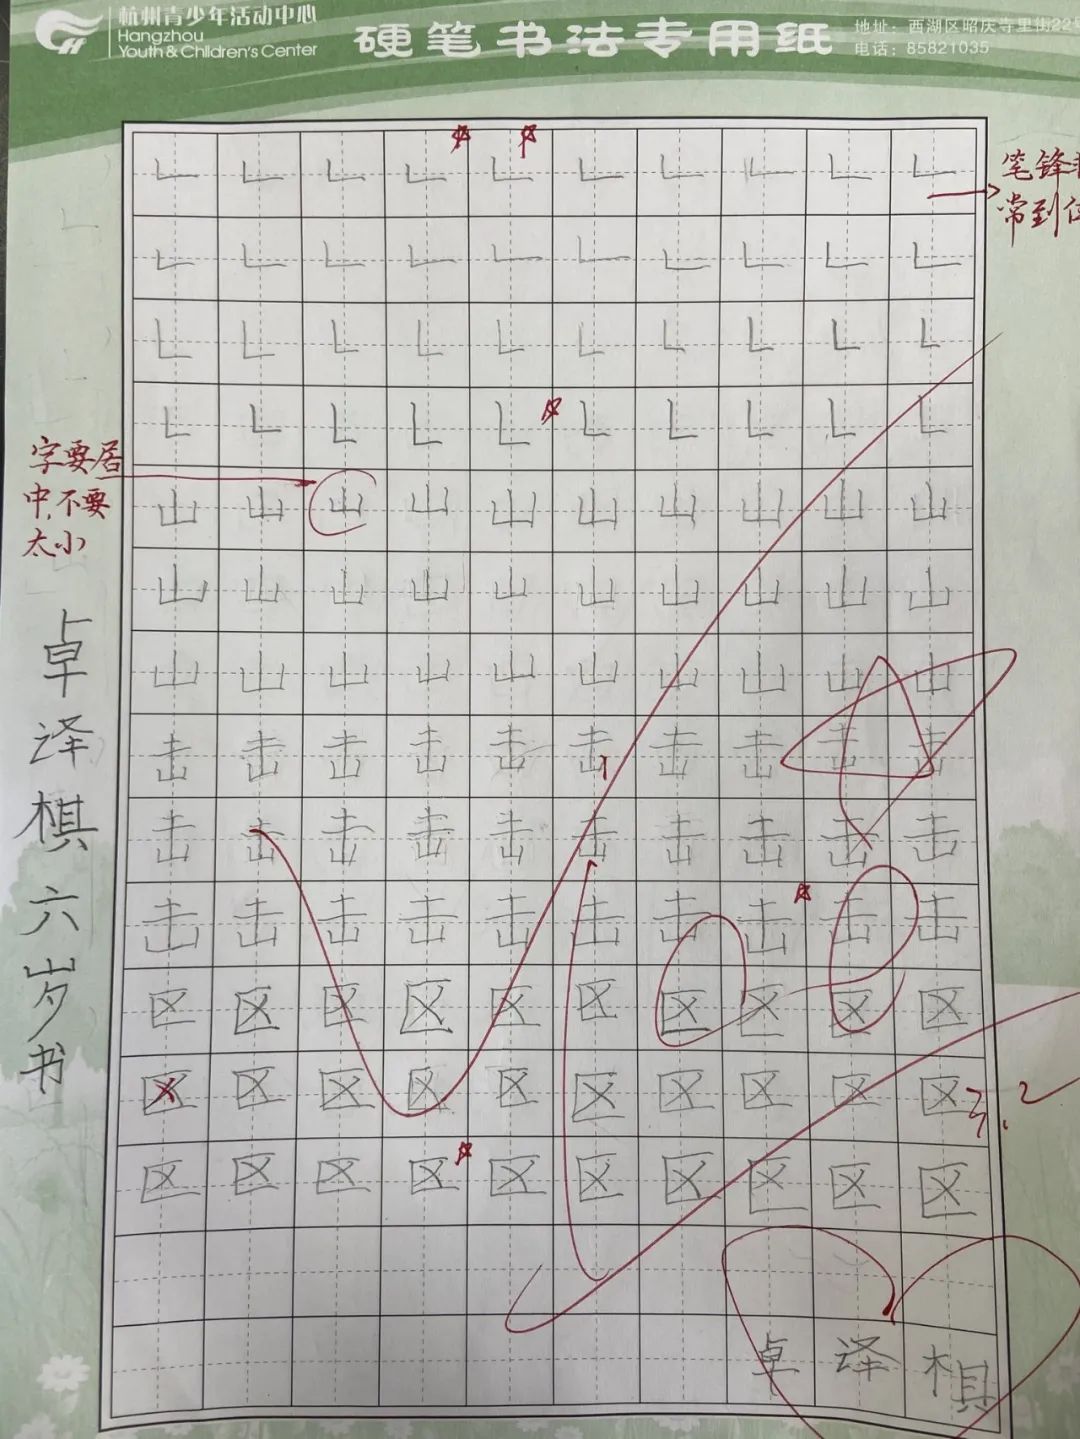 杭州青少年活动中心
Hangzhou
Youth & Children's Center
硬笔书法专用纸
地址：西湖区昭庆寺里街22号
电话：85821035
笔锋非
常到位
字要居
中,不要
太小
山山山山山山山山山山
山山山山山山山山山山
山山山山山山山山山山
击击击击击击击击击击
击击击击击击击击击击
击击击击击击击击击击
区区区区区区区区区区
区区区区区区区区区区
区区区区区区区区区区
卓泽棋
卓泽棋六岁书
3.2